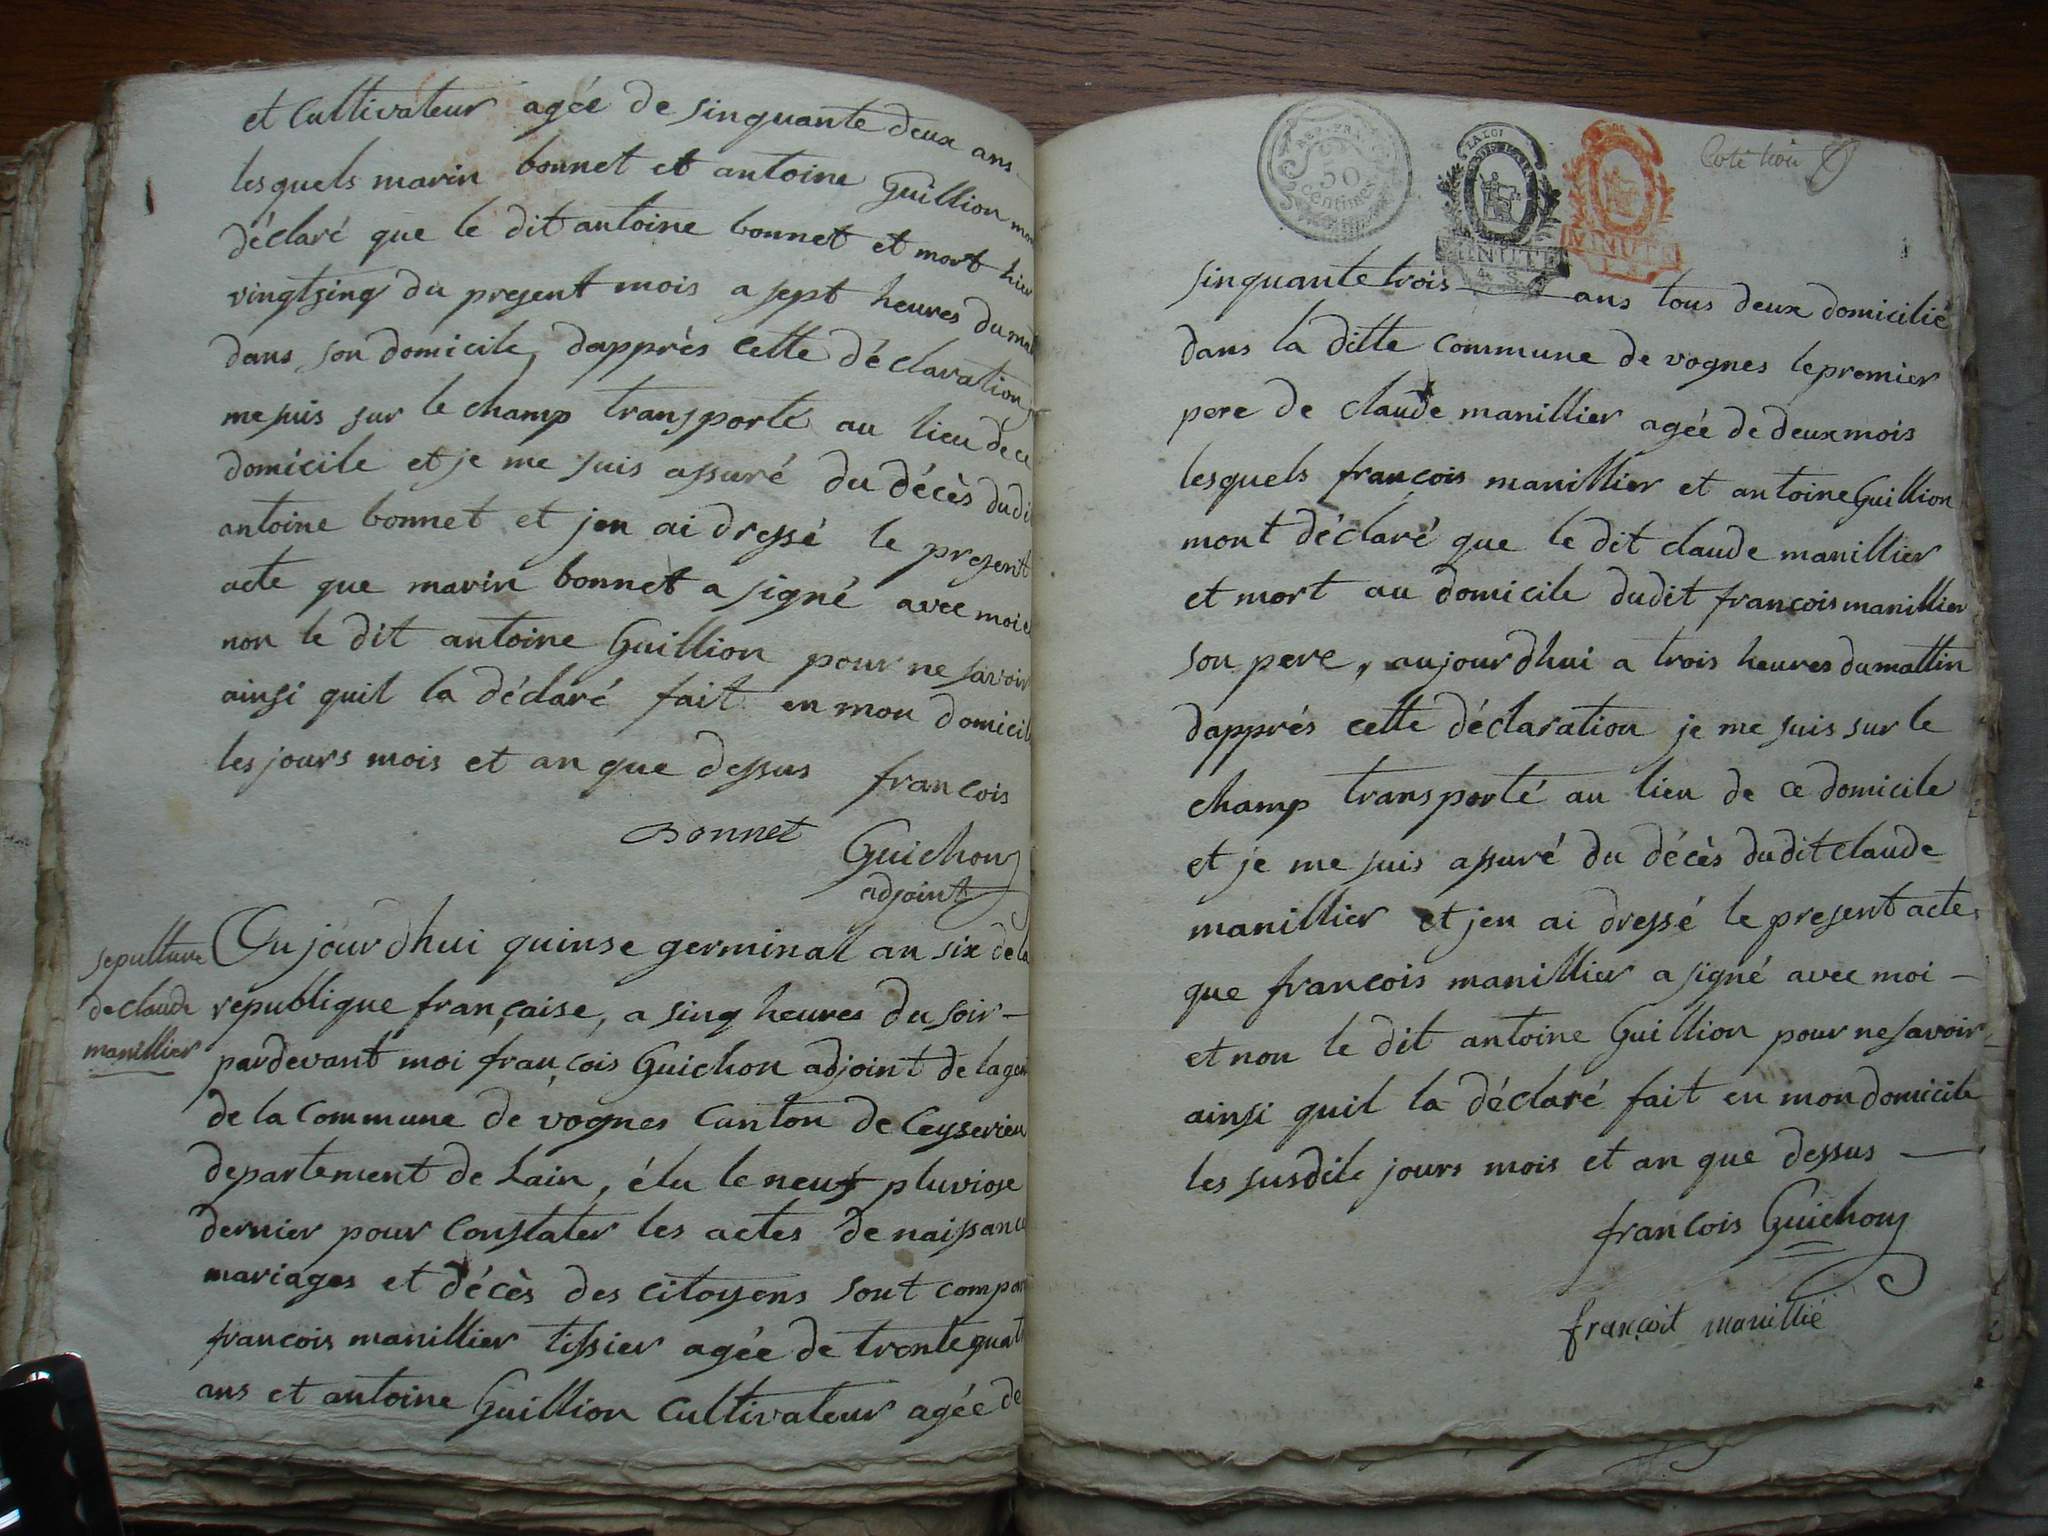 et Cultivateur agée de sinquante deux ans
lesquels marin bonnet et antoine Guillion mon
déclaré que le dit antoine bonnet et mort hier
vingtsinq du present mois a sept heures du mat
dans son domicile, dapprès cette déclaration je
me suis sur le champ transporté au lieu de ce
domicile et je me suis assuré du décès dudi
antoine bonnet et jen ai dressé le present
acte que marin bonnet a signé avec moi e
non le dit antoine Guillion pour ne savoir
ainsi quil la déclaré fait en mon domicil
les jours mois et an que dessus françois
Bonnet Guichon
adjoint
sepulture
de claude
manillier
Aujourdhui quinse germinal an six de la
republique française, a sinq heures du soir -
pardevant moi françois Guichon adjoint de lagen
de la Commune de vognes Canton de Ceyserieu
departement de Lain, élu le neuf pluviose
dernier pour Constater les actes de naissance
mariages et décès des citoyens sont compar
francois manillier tissier agée de trente quatr
ans et antoine Guillion Cultivateur agée de
REP. FRA.
50
Centimes
LA LOI
MINUTE
MINUTE
Coté trois
sinquante trois ans tous deux domicilié
dans la ditte commune de vognes le premier
pere de claude manillier agée de deux mois
lesquels françois manillier et antoine Guillion
mont déclaré que le dit claude manillier
et mort au domicile dudit françois manillier
son pere, aujourdhui a trois heures du mattin
dapprés cette déclaration je me suis sur le
champ transporté au lieu de ce domicile
et je me suis assuré du décès dudit claude
manillier et jen ai dressé le present acte
que francois manillier a signé avec moi -
et non le dit antoine Guillion pour ne savoir
ainsi quil la déclaré fait en mon domicile
les susdits jours mois et an que dessus
francois Guichon
françoit manillié